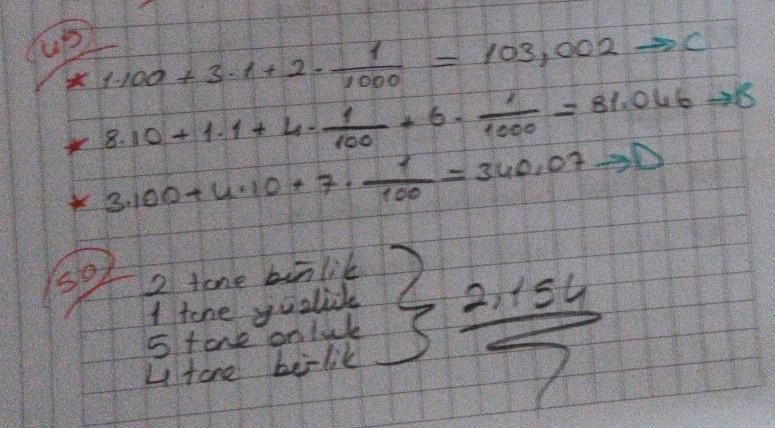 45
* 1.100 + 3.1 + 2. 1/1000 = 103,002 → C
* 8.10 + 1.1 + 4. 1/100 + 6. 1/1000 = 81.046 → B
* 3.100 + 4.10 + 7. 1/100 = 340,07 → D
50
2 tane binlik
1 tane yüzlük
5 tane onluk
4 tane birlik
2,154